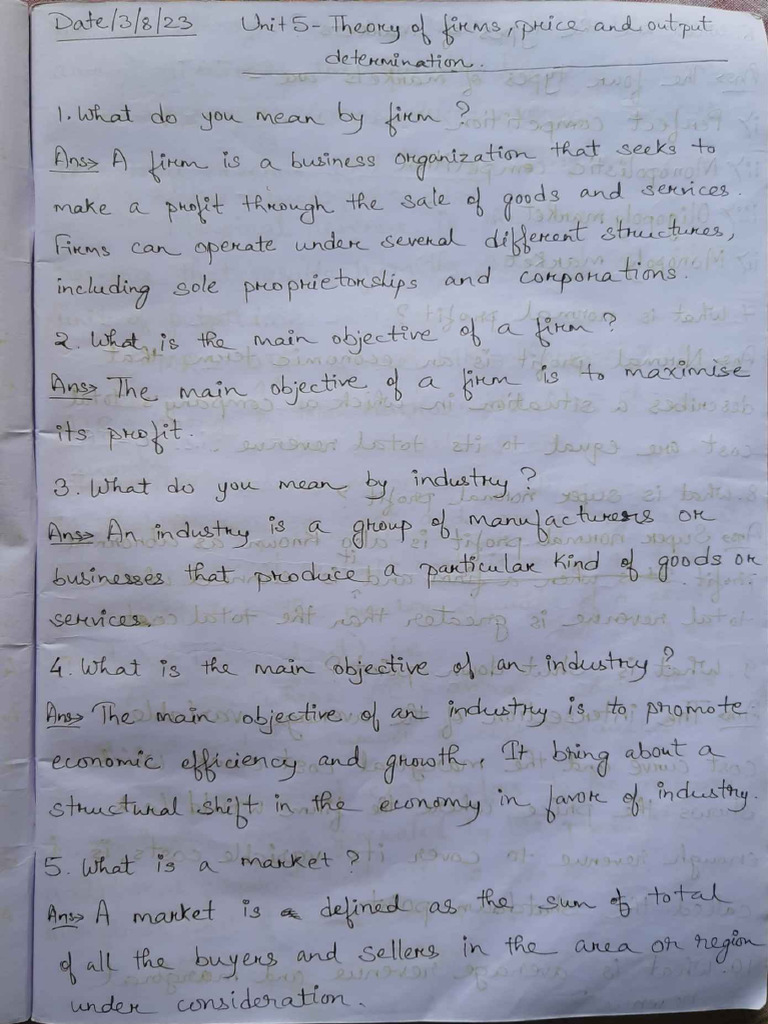 Date/3/8/23 Unit 5 - Theory of firms, price and output
determination.
1. What do you mean by firm ?
Ans→ A firm is a business organization that seeks to
make a profit through the sale of goods and services.
Firms can operate under several different structures,
including sole proprietorships and corporations.
2. What is the main objective of a firm ?
Ans→ The main objective of a firm is to maximise
its profit.
3. What do you mean by industry ?
Ans→ An industry is a group of manufacturers or
businesses that produce a particular kind of goods or
services.
4. What is the main objective of an industry ?
Ans→ The main objective of an industry is to promote
economic efficiency and growth. It bring about a
structural shift in the economy in favor of industry.
5. What is a market ?
Ans→ A market is defined as the sum of total
of all the buyers and sellers in the area or region
under consideration.